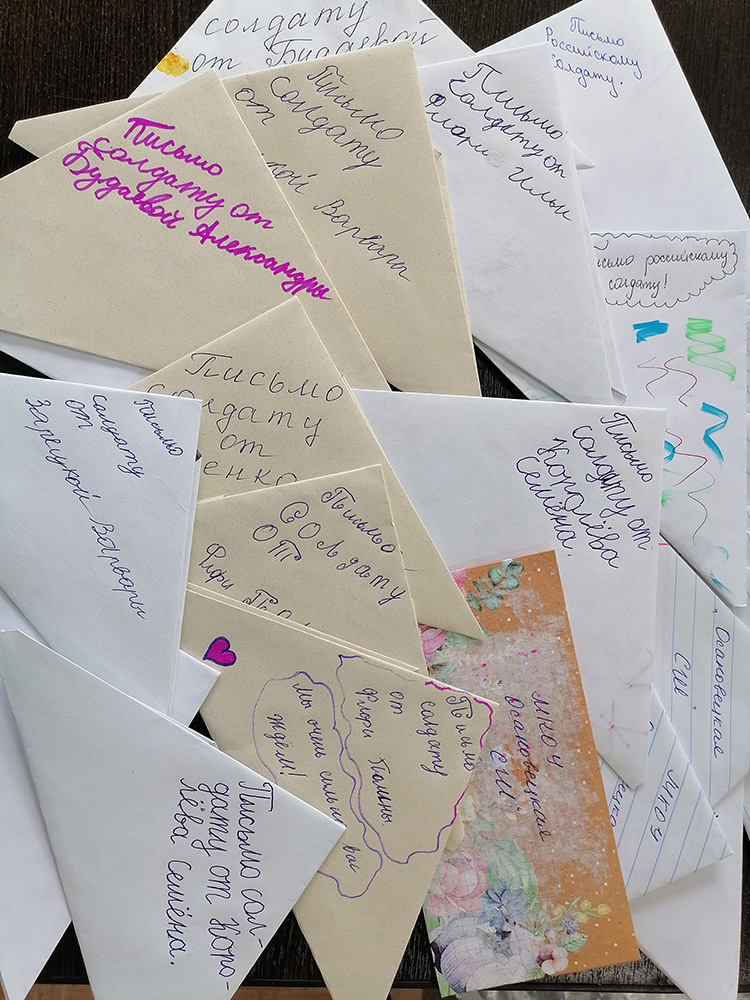 солдату
от Будаевой
Письмо
Российскому
солдату.
Письмо
солдату
от
Варвары
Письмо
солдату от
Ильи
Письмо
солдату от
Будаевой Александры
российскому
солдату!
Письмо
солдату
от
енко
Письмо
солдату
от
Зарецкой Варвары
Письмо
солдату от
Королёва
Семёна.
Письмо
солдату
от
Письмо
солдату
от
Флфи Полины
Мы очень сильно вас
ждём!
МКОУ
"Осиновецкая
СШ"
Осиновецкая
СШ"
МКОУ
Письмо сол-
дату от Коро-
лёва Семёна.